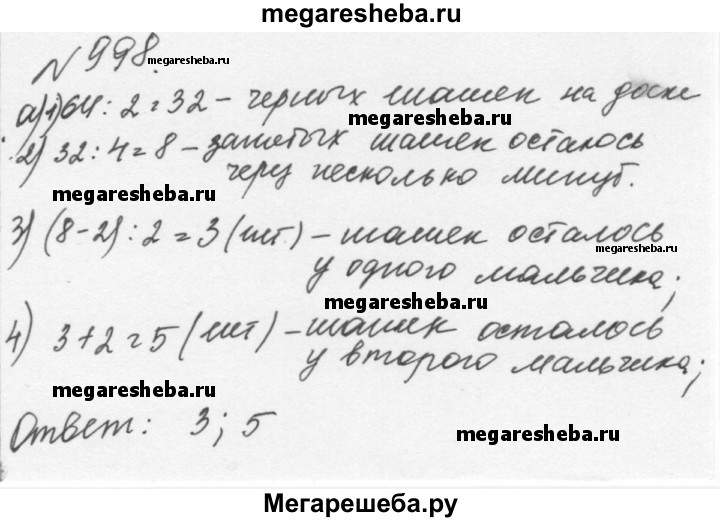 megaresheba.ru
№ 998. megaresheba.ru
а) 1) 64 : 2 = 32 – черных шашек на доске
megaresheba.ru
2) 32 : 4 = 8 – занятых шашек осталось
через несколько минут.
megaresheba.ru
3) (8-2) : 2 = 3 (шт) – шашек осталось
megaresheba.ru
у одного мальчика;
megaresheba.ru
4) 3 + 2 = 5 (шт) – шашек осталось
у второго мальчика;
megaresheba.ru
Ответ: 3; 5
megaresheba.ru
Мегарешеба.ру